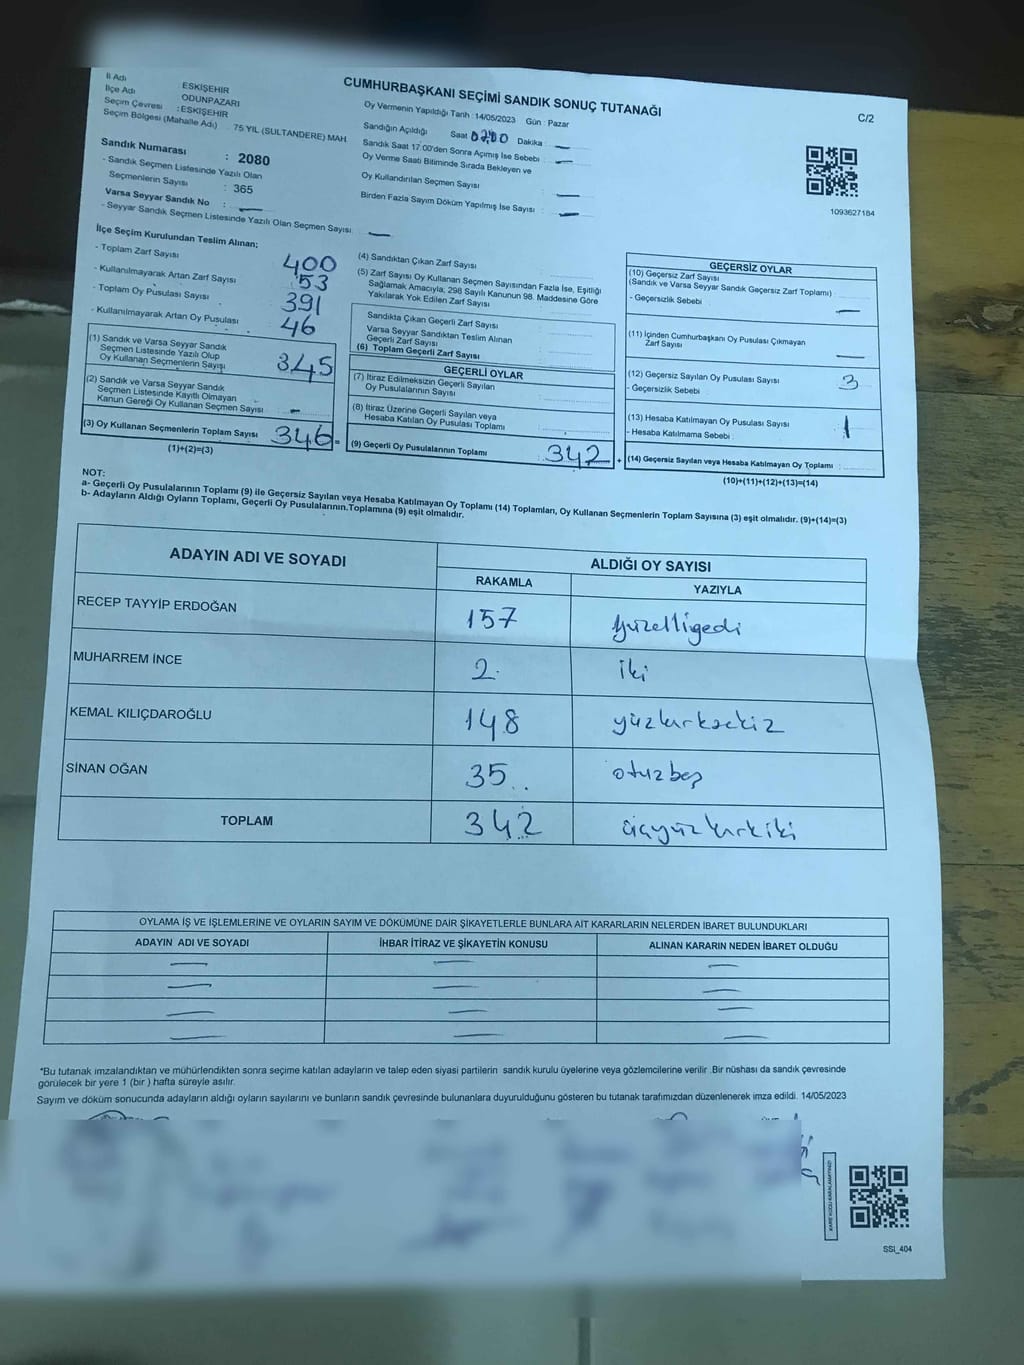 İl Adı ESKİŞEHİR
İlçe Adı ODUNPAZARI
Seçim Çevresi : ESKİŞEHİR
Seçim Bölgesi (Mahalle Adı) 75 YIL (SULTANDERE) MAH.
CUMHURBAŞKANI SEÇİMİ SANDIK SONUÇ TUTANAĞI
C/2
Oy Vermenin Yapıldığı Tarih : 14/05/2023 Gün : Pazar
Sandığın Açıldığı Saat Dakika :
Sandık Saat 17.00'den Sonra Açımış İse Sebebi :
Oy Verme Saati Bitiminde Sırada Bekleyen ve
Oy Kullandırılan Seçmen Sayısı
Birden Fazla Sayım Döküm Yapılmış İse Sayısı :
1093627184
Sandık Numarası : 2080
- Sandık Seçmen Listesinde Yazılı Olan
Seçmenlerin Sayısı : 365
Varsa Seyyar Sandık No :
- Seyyar Sandık Seçmen Listesinde Yazılı Olan Seçmen Sayısı :
İlçe Seçim Kurulundan Teslim Alınan;
- Toplam Zarf Sayısı 400
- Kullanılmayarak Artan Zarf Sayısı 53
- Toplam Oy Pusulası Sayısı 391
- Kullanılmayarak Artan Oy Pusulası 46
(1) Sandık ve Varsa Seyyar Sandık
Seçmen Listesinde Yazılı Olup
Oy Kullanan Seçmenlerin Sayısı 345
(2) Sandık ve Varsa Seyyar Sandık
Seçmen Listesinde Kayıtlı Olmayan
Kanun Gereği Oy Kullanan Seçmen Sayısı -
(3) Oy Kullanan Seçmenlerin Toplam Sayısı 346 =
(1)+(2)=(3)
(4) Sandıktan Çıkan Zarf Sayısı
(5) Zarf Sayısı Oy Kullanan Seçmen Sayısından Fazla İse, Eşitliği
Sağlamak Amacıyla; 298 Sayılı Kanunun 98. Maddesine Göre
Yakılarak Yok Edilen Zarf Sayısı
Sandıkta Çıkan Geçerli Zarf Sayısı
Varsa Seyyar Sandıktan Teslim Alınan
Geçerli Zarf Sayısı
(6) Toplam Geçerli Zarf Sayısı
GEÇERLİ OYLAR
(7) İtiraz Edilmeksizin Geçerli Sayılan
Oy Pusulalarının Sayısı
(8) İtiraz Üzerine Geçerli Sayılan veya
Hesaba Katılan Oy Pusulası Toplamı
(9) Geçerli Oy Pusulalarının Toplamı 342 +
GEÇERSİZ OYLAR
(10) Geçersiz Zarf Sayısı
(Sandık ve Varsa Seyyar Sandık Geçersiz Zarf Toplamı)
- Geçersizlik Sebebi :
(11) İçinden Cumhurbaşkanı Oy Pusulası Çıkmayan
Zarf Sayısı
(12) Geçersiz Sayılan Oy Pusulası Sayısı 3
- Geçersizlik Sebebi :
(13) Hesaba Katılmayan Oy Pusulası Sayısı 1
- Hesaba Katılmama Sebebi :
(14) Geçersiz Sayılan veya Hesaba Katılmayan Oy Toplamı
(10)+(11)+(12)+(13)=(14)
NOT:
a- Geçerli Oy Pusulalarının Toplamı (9) ile Geçersiz Sayılan veya Hesaba Katılmayan Oy Toplamı (14) Toplamları, Oy Kullanan Seçmenlerin Toplam Sayısına (3) eşit olmalıdır. (9)+(14)=(3)
b- Adayların Aldığı Oyların Toplamı, Geçerli Oy Pusulalarının Toplamına (9) eşit olmalıdır.
ADAYIN ADI VE SOYADI
ALDIĞI OY SAYISI
RAKAMLA YAZIYLA
RECEP TAYYİP ERDOĞAN 157 yüzelliyedi
MUHARREM İNCE 2 iki
KEMAL KILIÇDAROĞLU 148 yüzkırksekiz
SİNAN OĞAN 35 otuzbeş
TOPLAM 342 üçyüzkırkiki
OYLAMA İŞ VE İŞLEMLERİNE VE OYLARIN SAYIM VE DÖKÜMÜNE DAİR ŞİKAYETLERLE BUNLARA AİT KARARLARIN NELERDEN İBARET BULUNDUKLARI
ADAYIN ADI VE SOYADI İHBAR İTİRAZ VE ŞİKAYETİN KONUSU ALINAN KARARIN NEDEN İBARET OLDUĞU
*Bu tutanak imzalandıktan ve mühürlendikten sonra seçime katılan adayların ve talep eden siyasi partilerin sandık kurulu üyelerine veya gözlemcilerine verilir .Bir nüshası da sandık çevresinde
görülecek bir yere 1 (bir ) hafta süreyle asılır.
Sayım ve döküm sonucunda adayların aldığı oyların sayılarını ve bunların sandık çevresinde bulunanlara duyurulduğunu gösteren bu tutanak tarafımızdan düzenlenerek imza edildi. 14/05/2023
SSI_404